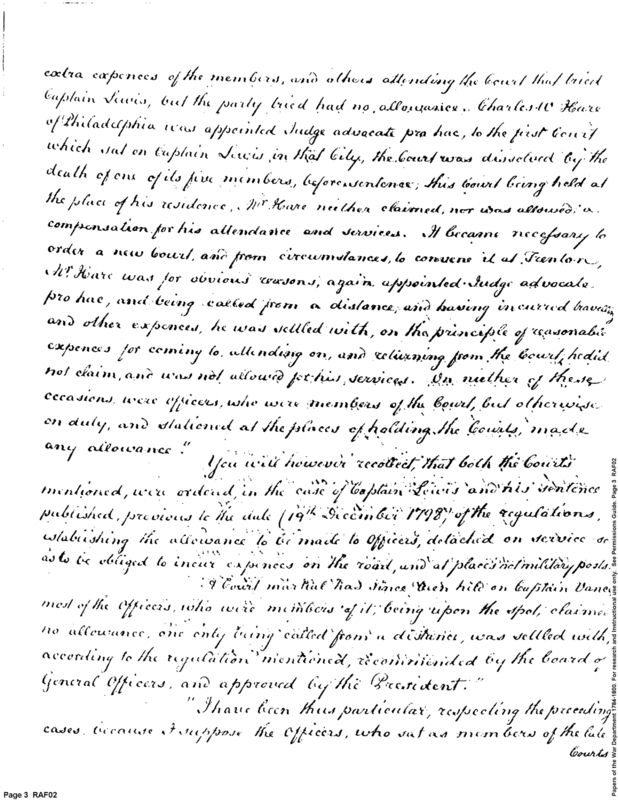 extra expences of the members, and others attending the Court that tried
Captain Lewis, but the party tried had no allowance. Charles W Hare
of Philadelphia was appointed Judge advocate pro hac, to the first Court
which sat on Captain Lewis in that City, the Court was dissolved by the
death of one of its five members, before sentence; this Court being held at
the place of his residence, Mr Hare neither claimed, nor was allowed a
compensation for his attendance and services. It became necessary to
order a new Court, and from circumstances, to convene it at Trenton,
Mr Hare was for obvious reasons, again appointed Judge advocate
pro hac, and being called from a distance, and having incurred traveling
and other expences, he was settled with, on the principle of reasonable
expences for coming to, attending on, and returning from the Court, he did
not claim, and was not allowed for his services. On neither of these
occasions, were officers, who were members of the Court, but otherwise
on duty, and stationed at the places of holding the Courts, made
any allowance."
You will however recollect, that both the Courts
mentioned, were ordered, in the case of Captain Lewis and his sentence
published, previous to the date (19th December 1798) of the regulations,
establishing the allowance to be made to Officers, detached on service so
as to be obliged to incur expences on the road, and at places not military posts.
"A Court martial had since been held on Captain Vance
most of the Officers, who were members of it, being upon the spot, claimed
no allowance, one only being called from a distance, was settled with,
according to the regulation mentioned, recommended by the board of
General Officers, and approved by the President."
"I have been thus particular, respecting the preceding
cases, because I suppose the Officers, who sat as members of the late
Courts
Page 3 RAF02
Papers of the War Department 1784-1800. For research and instructional use only. See Permissions Guide. Page 3 RAF02